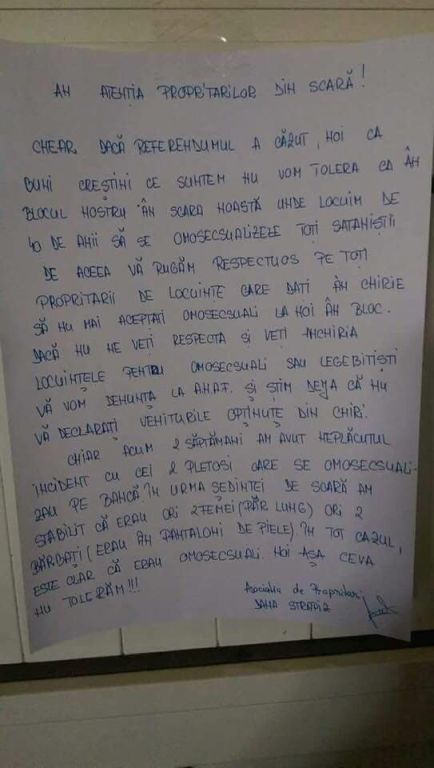 AN ATENȚIA PROPRITARILOR DIN SCARĂ!
CHEAR DACĂ REFERENDUMUL A CĂZUT, NOI CA
BUNI CREȘTINI CE SUNTEM NU VOM TOLERA CA ÂN
BLOCUL NOSTRU ÂN SCARA NOASTĂ UNDE LOCUIM DE
40 DE ANII SĂ SE OMOSECSUALIZELE TOTI SATANIȘTII
DE ACEEA VĂ RUGĂM RESPECTUOS PE TOTI
PROPRITARII DE LOCUINTE CARE DATI ÂN CHIRIE
SĂ NU MAI ACEPTATI OMOSECSUALI LA NOI ÂN BLOC.
DACĂ NU NE VETI RESPECTA SI VETI ÂNCHIRIA
LOCUINTELE PENTRU OMOSECSUALI SAU LEGEBITIȘTI
VĂ VOM DENUNȚA LA A.N.A.F. ȘI ȘTIM DEMA CĂ NU
VĂ DECLARATI VENITURILE OPTINUTE DIN CHIRI.
CHIAR ACUM 2 SĂPTĂMANI AM AVUT NEPLĂCUTUL
INCIDENT CU CEI 2 PLETOSI CARE SE OMOSECSUALI-
ZAU PE BANCĂ ÎN URMA ȘEDINTEI DE SCARĂ AM
STABILIT CĂ ERAU ORI 2 FEMEI (PĂR LUNG) ORI 2
BĂRBAȚI (ERAU ÂN PANTALONI DE PIELE) ÎN TOT CAZUL,
ESTE CLAR CĂ ERAU OMOSECSUALI. NOI AȘA CEVA
NU TOLERĂM!!!
Asociatia de Propritari